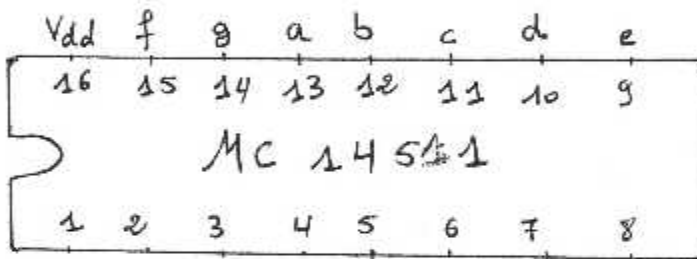 Vdd f g a b c d e
16 15 14 13 12 11 10 9
MC 14511
1 2 3 4 5 6 7 8